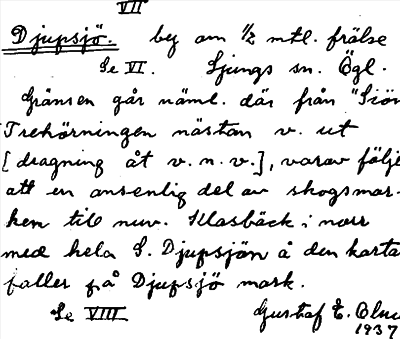 VII
Djupsjö. by om 1/2 mtl. frälse
Se VI. Ljungs sn. Ögl.
Gränsen går näml. där från "Siön
Trehörningen nästan v. ut
[dragning åt v.n.v.], varav följe
att en ansenlig del av skogsmar-
ken till nuv. Klasbäck i norr
med hela S. Djupsjön å den karta
faller på Djupsjö mark.
Se VIII Gustaf E.
1937